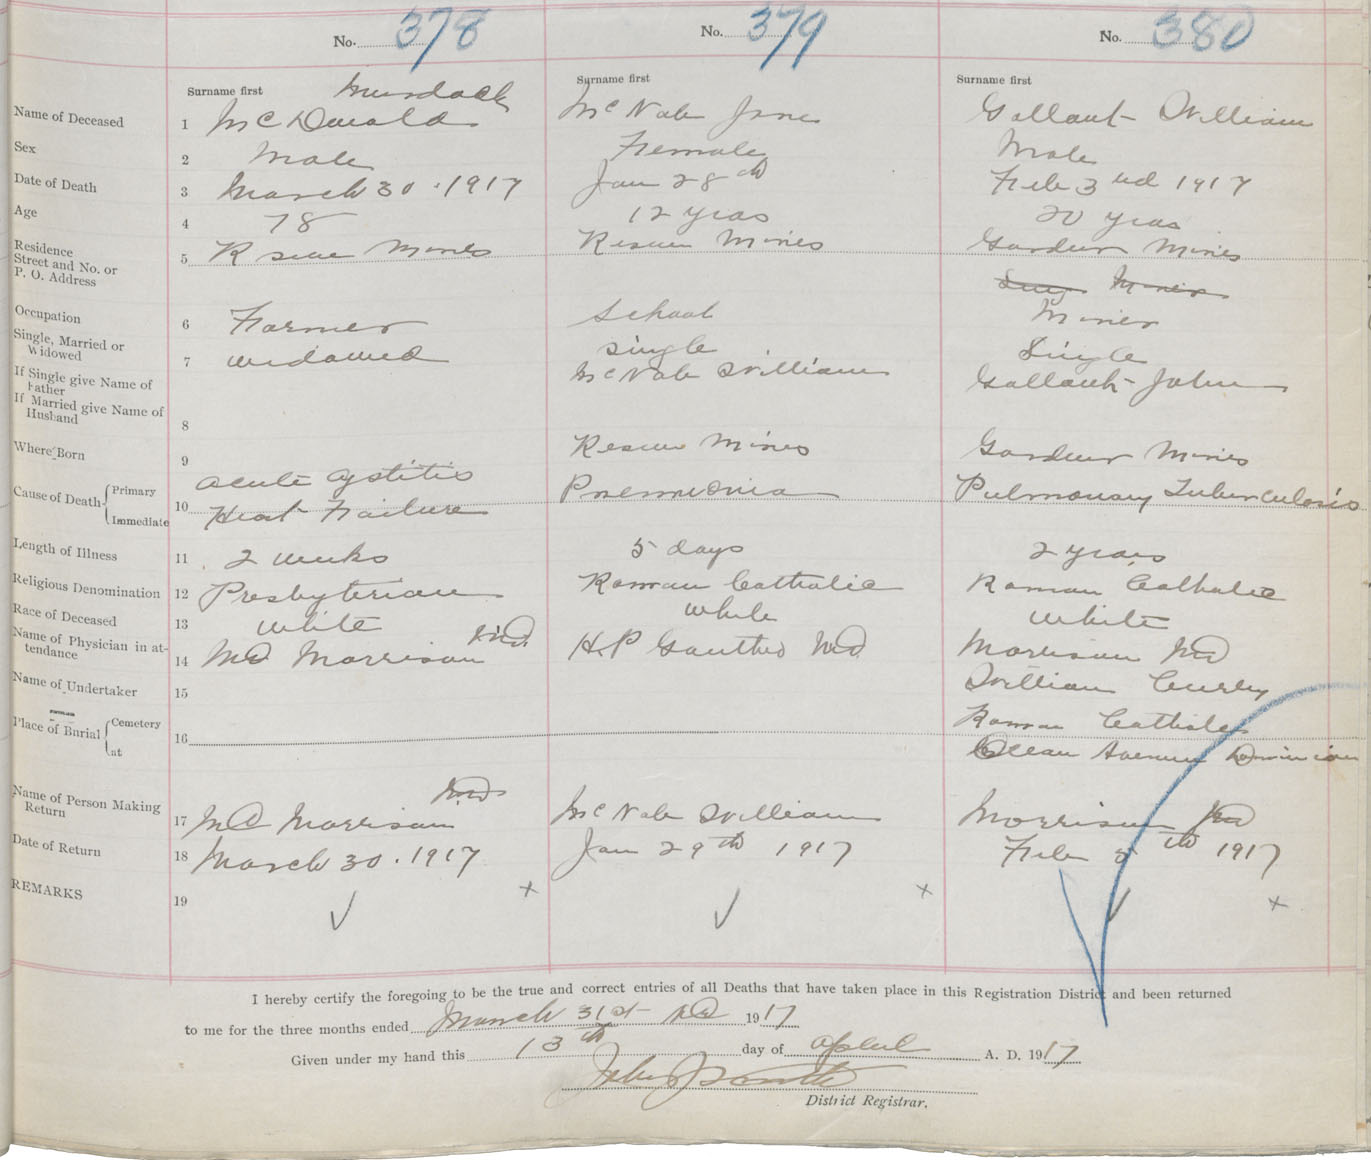 No. 378 No. 379 No. 380
Surname first Surname first Surname first
Murdock
Name of Deceased 1 McDonald Mc Nab Jane Gallant William
Sex 2 Male Female Male
Date of Death 3 March 30. 1917 Jan 28th Feb 3rd 1917
Age 4 78 12 years 20 years
Residence
Street and No. or
P. O. Address 5 Reserve Mines Reserve Mines Gardiner Mines
Miner
Occupation 6 Farmer School Miner
Single, Married or
Widowed 7 widowed Single Single
If Single give Name of
Father Mc Nab William Gallant John
If Married give Name of
Husband 8
Where Born 9 Reserve Mines Gardiner Mines
Cause of Death Primary acute cystitis Pneumonia Pulmonary Tuberculosis
Immediate 10 Heart Failure
Length of Illness 11 2 weeks 5 days 2 years
Religious Denomination 12 Presbyterian Roman Catholic Roman Catholic
Race of Deceased 13 White White White
Name of Physician in at-
tendance 14 Morrison MD H.P Md Morrison Md
Name of Undertaker 15 William Curley
Place of Burial Cemetery Roman Catholic
at 16 Ocean Avenue Dominion
Name of Person Making
Return 17 Morrison Md Mc Nab William Morrison Md
Date of Return 18 March 30. 1917 Jan 29th 1917 Feb 5th 1917
REMARKS 19
I hereby certify the foregoing to be the true and correct entries of all Deaths that have taken place in this Registration District and been returned
to me for the three months ended March 31st AD 1917
Given under my hand this 13th day of April A. D. 1917
John
District Registrar.